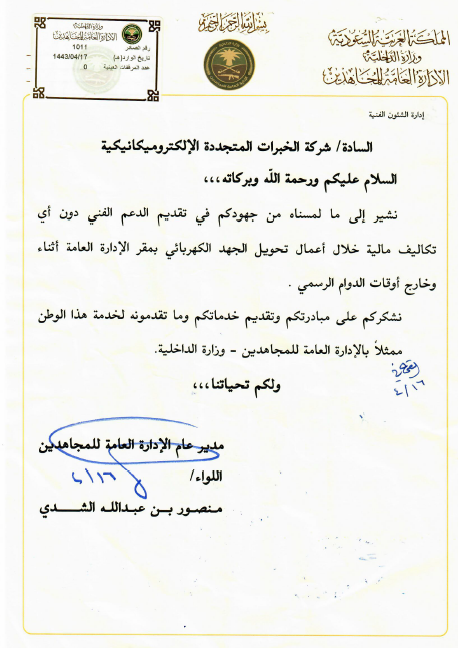 بسم الله الرحمن الرحيم
المملكة العربية السعودية
وزارة الداخلية
الإدارة العامة للمجاهدين
وزارة الداخلية
الإدارة العامة للمجاهدين
رقم الصادر 1011
تاريخ الوارد(هـ) 1443/04/17
عدد المرفقات العينية 0
إدارة الشئون الفنية
السادة/ شركة الخبرات المتجددة الإلكتروميكانيكية
السلام عليكم ورحمة الله وبركاته،،،
نشير إلى ما لمسناه من جهودكم في تقديم الدعم الفني دون أي
تكاليف مالية خلال أعمال تحويل الجهد الكهربائي بمقر الإدارة العامة أثناء
وخارج أوقات الدوام الرسمي .
نشكركم على مبادرتكم وتقديم خدماتكم وما تقدمونه لخدمة هذا الوطن
ممثلاً بالإدارة العامة للمجاهدين – وزارة الداخلية.
٤/١٦
ولكم تحياتنا،،،
مدير عام الإدارة العامة للمجاهدين
اللواء/
منصور بن عبدالله الشدي